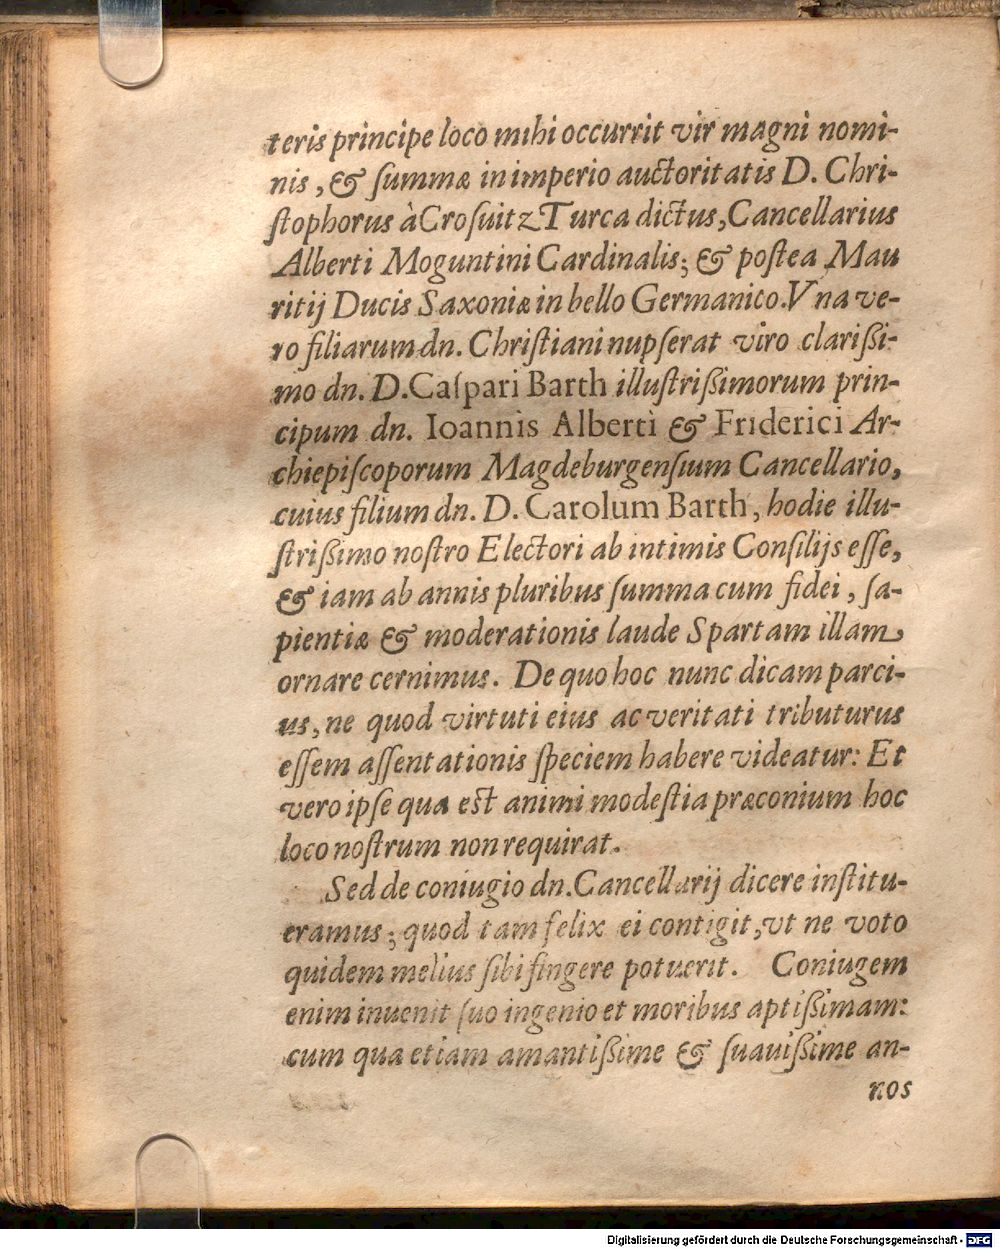 teris principe loco mihi occurrit vir magni nomi-
nis, & ſummæ in imperio auctoritatis D. Chri-
ſtophorus à Croſuitz Turca dictus, Cancellarius
Alberti Moguntini Cardinalis; & poſtea Mau
ritij Ducis Saxoniæ in bello Germanico. Vna ve-
ro filiarum dn. Chriſtiani nupſerat viro clariſsi-
mo dn. D. Caſpari Barth illuſtriſsimorum prin-
cipum dn. Ioannis Alberti & Friderici Ar-
chiepiſcoporum Magdeburgenſium Cancellario,
cuius filium dn. D. Carolum Barth, hodie illu-
ſtriſsimo noſtro Electori ab intimis Conſilijs eſſe,
& iam ab annis pluribus ſumma cum fidei, ſa-
pientiæ & moderationis laude Spartam illam
ornare cernimus. De quo hoc nunc dicam parci-
us, ne quod virtuti eius ac veritati tributurus
eſſem aſſentationis ſpeciem habere videatur: Et
vero ipſe qua est animi modeſtia præconium hoc
loco noſtrum non requirat.
Sed de coniugio dn. Cancellarij dicere inſtitu-
eramus; quod tam felix ei contigit, vt ne voto
quidem melius ſibi fingere potuerit. Coniugem
enim inuenit ſuo ingenio et moribus aptiſsimam:
cum qua etiam amantiſsime & ſuauiſsime an-
nos
Digitalisierung gefördert durch die Deutsche Forschungsgemeinschaft - DFG